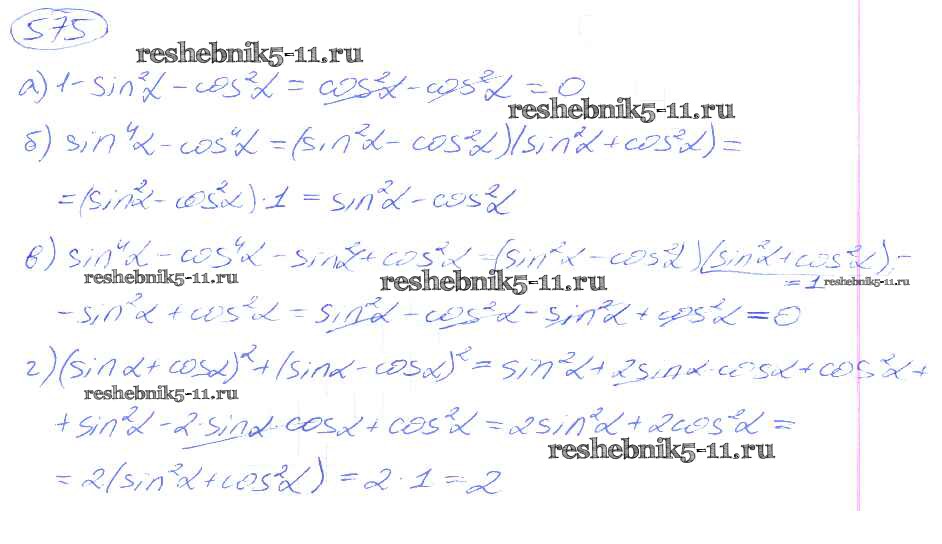 575
reshebnik5-11.ru
а) 1 - sin²α - cos²α = cos²α - cos²α = 0
reshebnik5-11.ru
б) sin⁴α - cos⁴α = (sin²α - cos²α)(sin²α + cos²α) =
= (sin²α - cos²α)·1 = sin²α - cos²α
в) sin⁴α - cos⁴α - sin²α + cos²α = (sin²α - cos²α)(sin²α + cos²α) -
reshebnik5-11.ru reshebnik5-11.ru = 1 reshebnik5-11.ru
- sin²α + cos²α = sin²α - cos²α - sin²α + cos²α = 0
г) (sinα + cosα)² + (sinα - cosα)² = sin²α + 2sinα·cosα + cos²α +
reshebnik5-11.ru
+ sin²α - 2·sinα·cosα + cos²α = 2sin²α + 2cos²α =
reshebnik5-11.ru
= 2(sin²α + cos²α) = 2·1 = 2